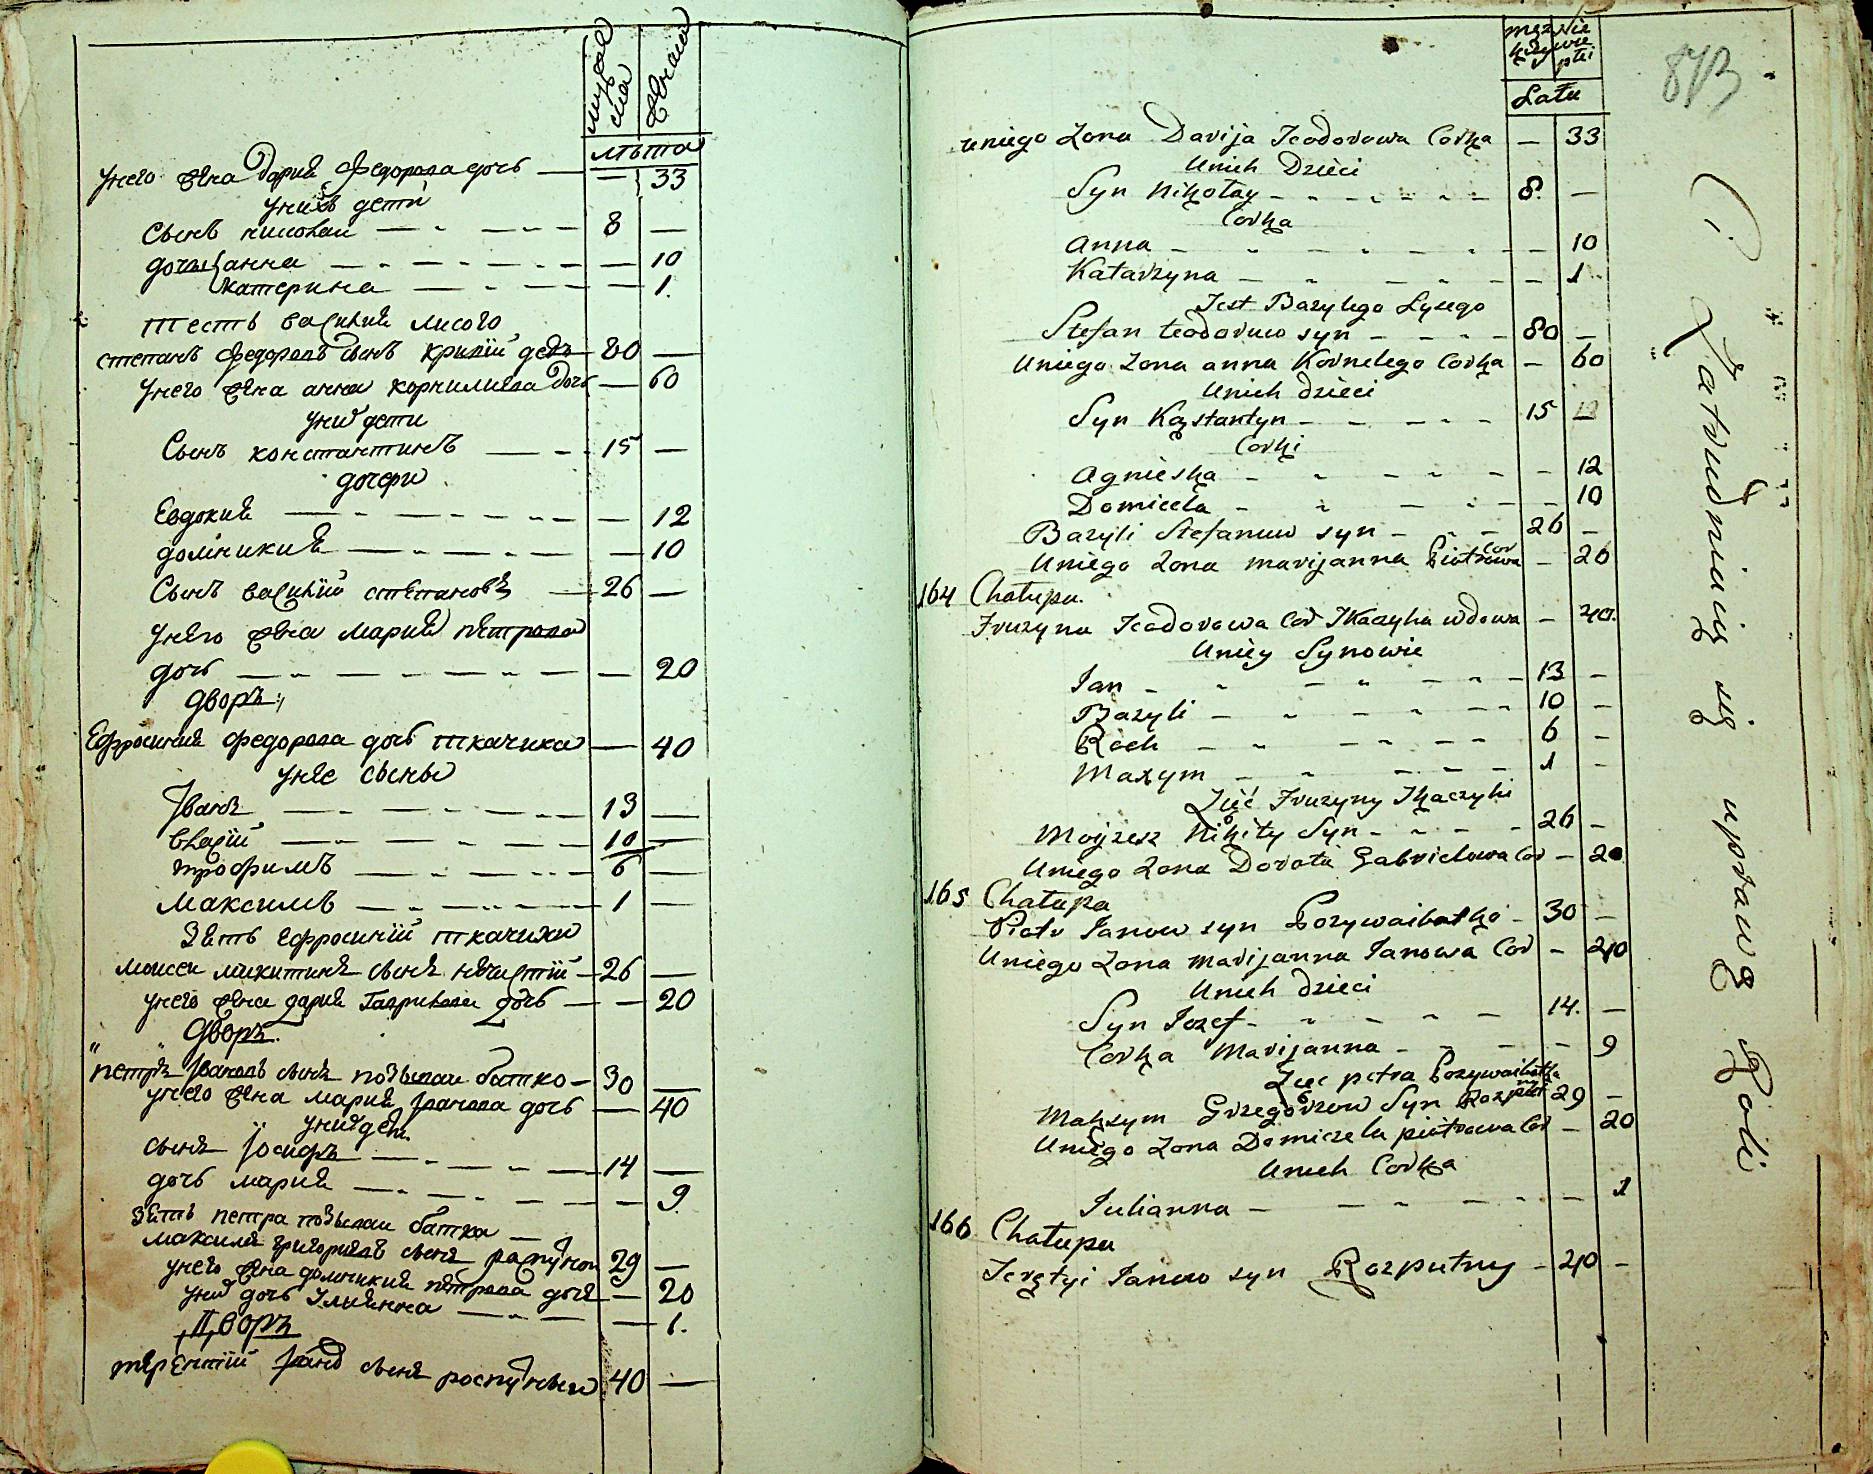 мужес
ка
женска
лѣта
унего жена Дария Федорова дочь — — 33
унихъ дети
Сынъ николаи — 8 —
дочьи анна — — 10
катерина — — 1.
тесть василия лисого
степанъ федоровъ сынъ кривій дедъ — 80 —
унего жена анна корнилиева дочь — 60
уних дети
Сынъ константинъ — 15 —
дочери
Евдокия — — 12
домникия — — 10
Сынъ василій степановъ — 26 —
унего жена Мария петрова
дочь — — 20
дворъ
Ефросиния федорова дочь ткачиха — 40
унее сыны
Иванъ — 13 —
василій — 10 —
трофимъ — 6 —
Максимъ — 1 —
Зять Ефросиніи ткачихи
моисеи микитинъ сынъ нечистій — 26 —
унего жена дария Гаврилова дочь — — 20
Дворъ
петръ Ивановъ сынъ позываи батко — 30 —
унего жена мария Иванова дочь — 40
уних дети
сынъ Иосифъ — 14 —
дочь мария — — 9
Зять петра позываи батка —
максимъ григориевъ сынъ распутнои 29 —
унего жена домникия петрова дочь — 20
уних дочь Улиянна — — 1.
Дворъ
терентій Иванов сынъ роспутныи 40 —
męz Nie
kzy wie
płci
Latu
873
uniego Zona Darija Teodorowa Corka — 33
Unich Dzieci
Syn Nikołay — 8. —
Corka
Anna — — 10
Katarzyna — — 1
Test Bazylego Łysego
Stefan teodoruw syn — 80 —
Uniego Zona anna Kornelego Corka — 60
Unich dzieci
Syn Kąstantyn — 15
Corki
Agnieska — — 12
Domicela — — 10
Bazyli Stefanuw syn — 26 —
Uniego Zona marijanna Piotrowa Cor — 20
164 Chałupa.
Fruzyna Teodorowa Cor Tkaczyha wdowa — 40.
Uniey Synowie
Jan — 13 —
Bazyli — 10 —
Roch — 6 —
Maxym — 1 —
Zięć Fruzyny Tkaczyhi
Mojzesz Nikity Syn — 26 —
Uniego Zona Dorota Gabrielowa Cor — 20
165 Chałupa
Piotr Janow syn Pozywaibatko — 30 —
Uniego Zona marijanna Janowa Cor — 40
Unich dzieci
Syn Jozef — 14. —
Corka Marijanna — — 9
Zięc petra Pozywaibatka
Maksym Grzegorzow Syn Rozputni 29 —
Uniego Zona Domicela piotrowa Cor — 20
Unich Corka
Julianna — — 1
166 Chałupa
Teretyi Janow syn Rozputny — 40 —
Zatrudniaią się uprawą Roli